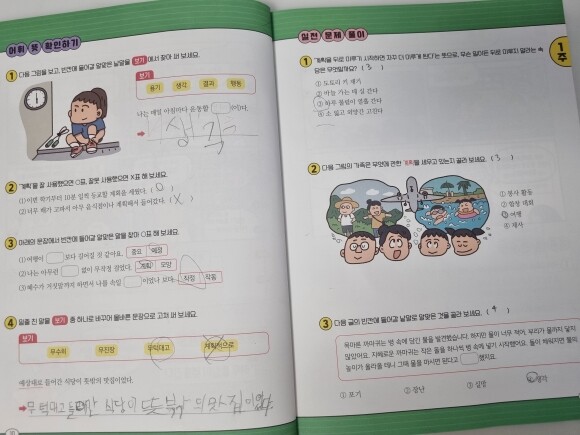 어휘 뜻 확인하기
1 다음 그림을 보고, 빈칸에 들어갈 알맞은 낱말을 보기 에서 찾아 써 보세요.
보기
용기 생각 결과 행동
나는 매일 아침마다 운동할 이다.
➡ 생각
2 '계획'을 잘 사용했으면 ○표, 잘못 사용했으면 X표 해 보세요.
(1) 이번 학기부터 10분 일찍 등교할 계획을 세웠다. ( O )
(2) 너무 배가 고파서 아무 음식점이나 계획해서 들어갔다. ( X )
3 아래의 문장에서 빈칸에 들어갈 알맞은 말을 찾아 ○표 해 보세요.
(1) 여행이 보다 길어질 것 같아요. 중요 예정
(2) 나는 아무런 없이 무작정 걸었다. 계획 모양
(3) 혜수가 거짓말까지 하면서 나를 속일 이었나 보다. 작정 작동
4 밑줄 친 말을 보기 중 하나로 바꾸어 올바른 문장으로 고쳐 써 보세요.
보기
무수히 무진장 무턱대고 계획적으로
예상대로 들어간 식당이 뜻밖의 맛집이었다.
➡ 무턱대고 들어간 식당이 뜻밖의 맛집이었다.
실전 문제 풀이
1주
1 '계획을 뒤로 미루기 시작하면 자꾸 더 미루게 된다'는 뜻으로, 무슨 일이든 뒤로 미루지 말라는 속
담은 무엇일까요? ( 3 )
① 도토리 키 재기
② 바늘 가는 데 실 간다
③ 하루 물림이 열흘 간다
④ 소 잃고 외양간 고친다
2 다음 그림의 가족은 무엇에 관한 계획을 세우고 있는지 골라 보세요. ( 3 )
① 봉사 활동
② 합창 대회
③ 여행
④ 제사
3 다음 글의 빈칸에 들어갈 낱말로 알맞은 것을 골라 보세요. ( 4 )
목마른 까마귀는 병 속에 담긴 물을 발견했습니다. 하지만 물이 너무 적어, 부리가 물까지 닿지
않았어요. 지혜로운 까마귀는 작은 돌을 하나씩 병 속에 넣기 시작했어요. 돌이 채워지면 물의
높이가 올라올 테니 그때 물을 마시면 된다고 했지요.
① 포기 ② 장난 ③ 실망 ④ 생각